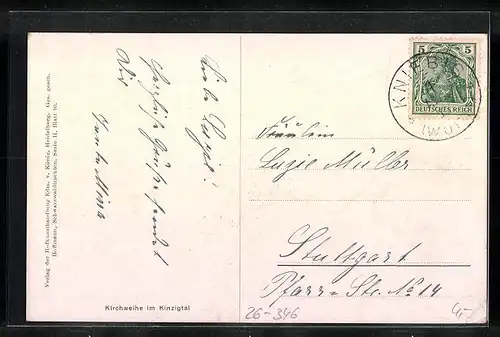 Verlag der Hofkunsthandlung Edm. v. König, Heidelberg. Ges. gesch.
Hoffmann, Schwarzwaldtrachten. Serie II, Blatt 10.
Liebe Luzie!
Herzliche Grüße sendet
Dir
Tante Mina
5 5
DEUTSCHES REICH
KNIEBIS
(WÜ)
Fräulein
Luzie Müller
Stuttgart
Pfarr-Str. No 14
Kirchweihe im Kinzigtal
26-346